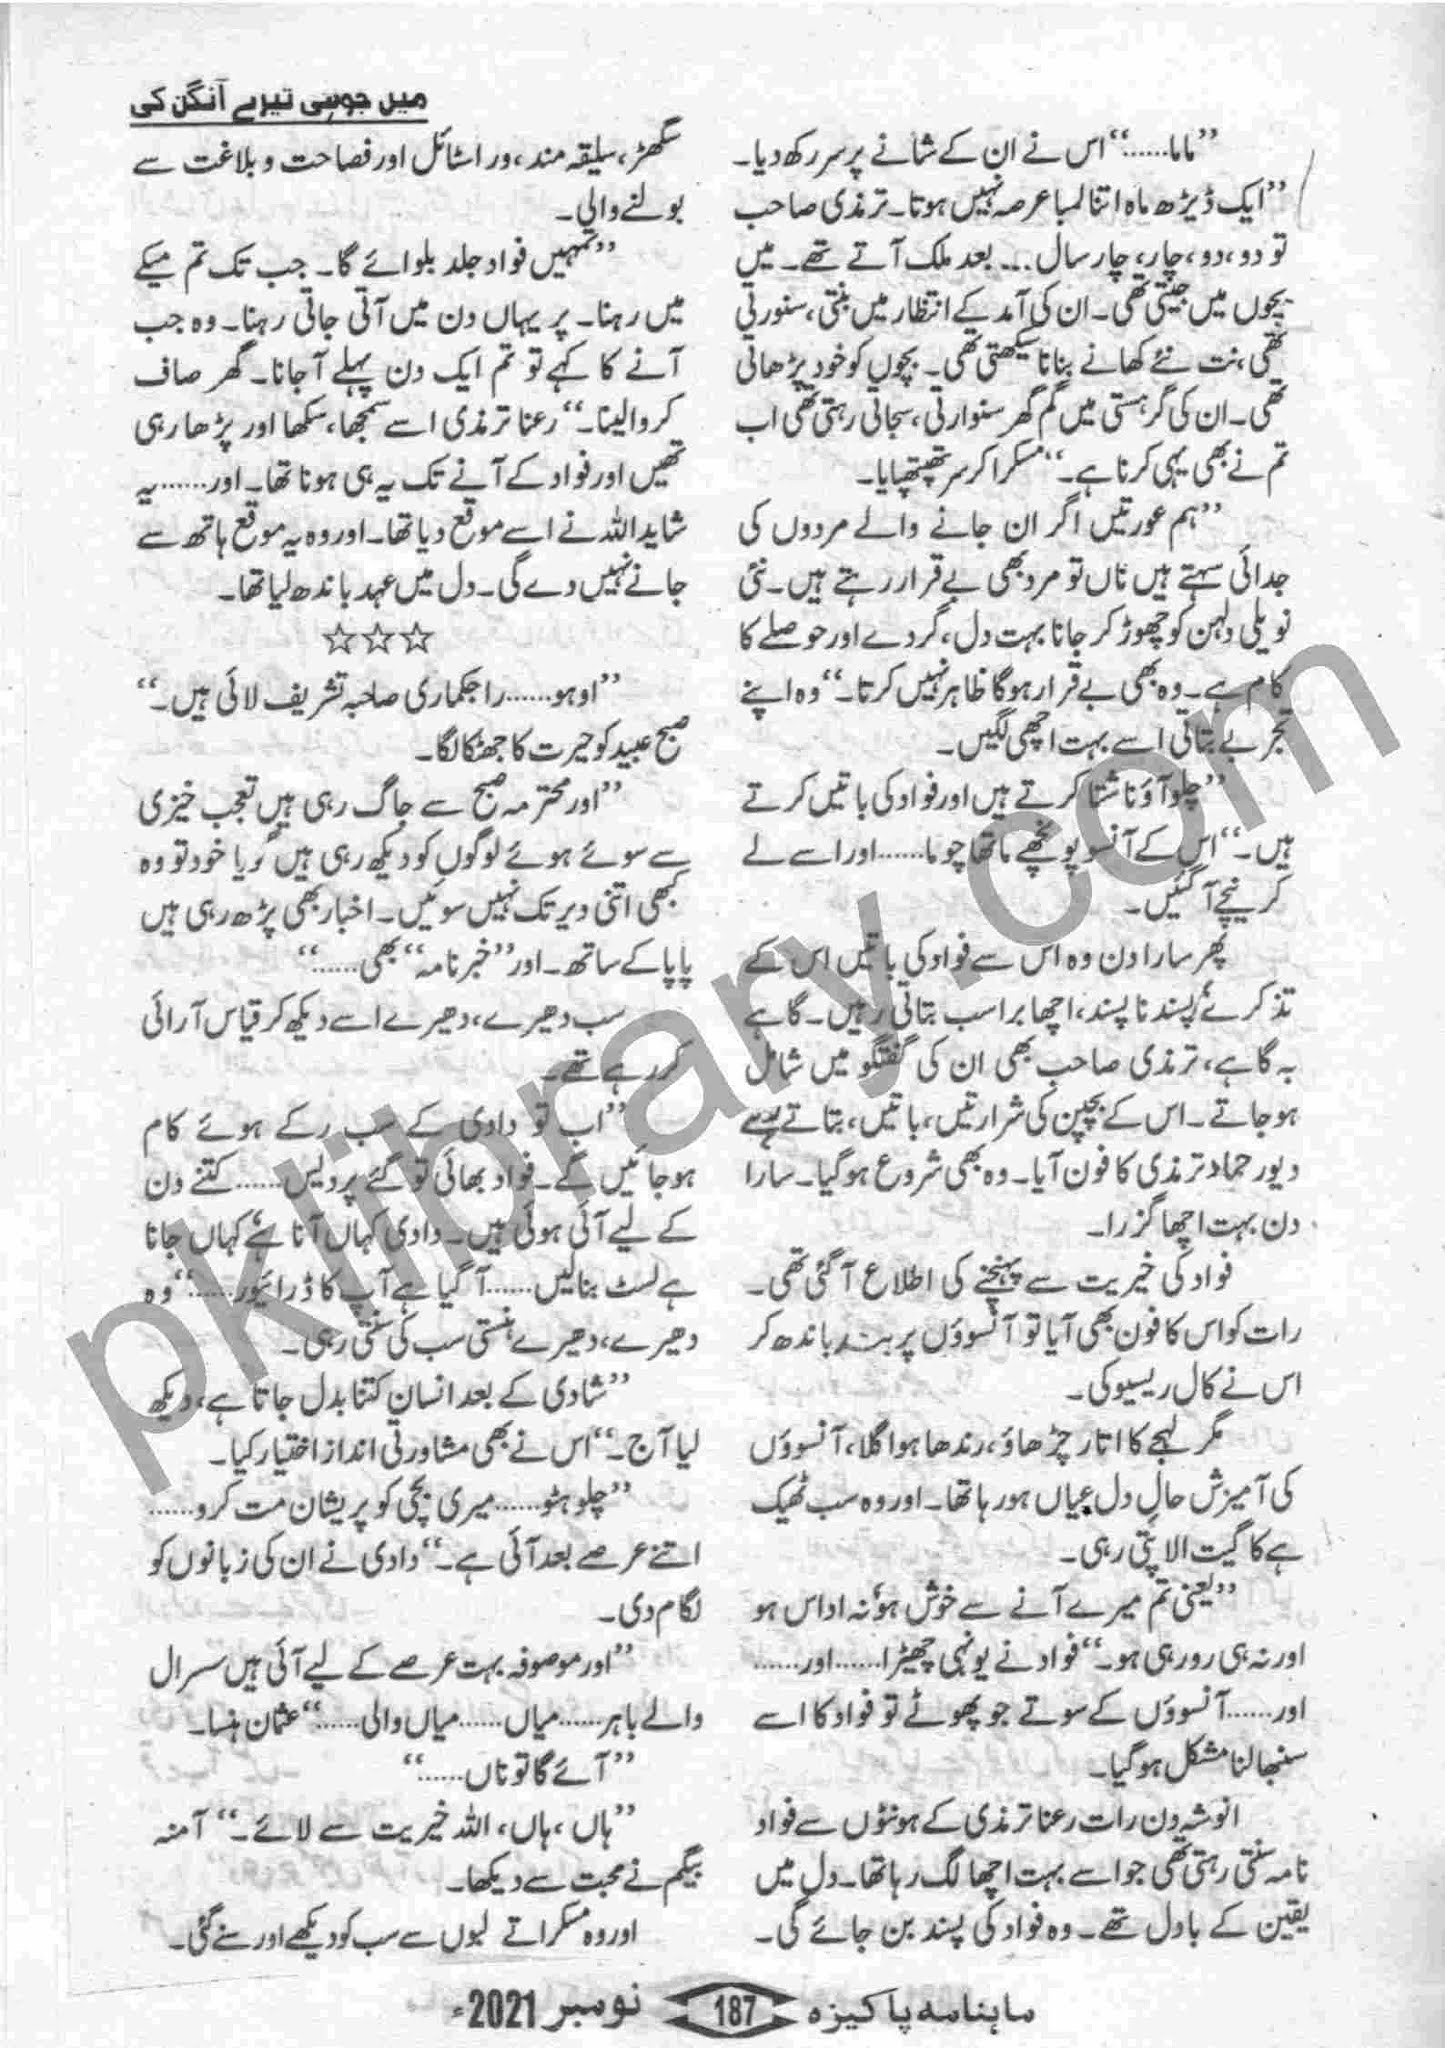 میں جوہی تیرے آنگن کی
”ماما......“ اس نے ان کے شانے پر سر رکھ دیا۔
”ایک ڈیڑھ ماہ اتنا لمبا عرصہ نہیں ہوتا۔ ترمذی صاحب
تو دو، دو، چار، چار سال... بعد ملک آتے تھے۔ میں
بچوں میں جیتی تھی۔ ان کی آمد کے انتظار میں بنتی، سنورتی
تھی، نت نئے کھانے بنانا سیکھتی تھی۔ بچوں کو خود پڑھاتی
تھی۔ ان کی گرہستی میں گم گھر سنوارتی، سجاتی رہتی تھی اب
تم نے بھی یہی کرنا ہے۔“ مسکرا کر سر تھپتھپایا۔
”ہم عورتیں اگر ان جانے والے مردوں کی
جدائی سہتے ہیں ناں تو مرد بھی بے قرار رہتے ہیں۔ نئی
نویلی دلہن کو چھوڑ کر جانا بہت دل، گردے اور حوصلے کا
کام ہے۔ وہ بھی بے قرار ہوگا ظاہر نہیں کرتا۔“ وہ اپنے
تجربے بتاتی اسے بہت اچھی لگیں۔
”چلو آؤ ناشتا کرتے ہیں اور فواد کی باتیں کرتے
ہیں۔“ اس کے آنسو پونچھے ماتھا چوما...... اور اسے لے
کر نیچے آ گئیں۔
پھر سارا دن وہ اس سے فواد کی باتیں اس کے
تذکرے، پسند نا پسند، اچھا برا سب بتاتی رہیں۔ گاہے
بہ گاہے، ترمذی صاحب بھی ان کی گفتگو میں شامل
ہو جاتے۔ اس کے بچپن کی شرارتیں، باتیں، بتاتے رہے
دیور حماد ترمذی کا فون آیا۔ وہ بھی شروع ہو گیا۔ سارا
دن بہت اچھا گزرا۔
فواد کی خیریت سے پہنچنے کی اطلاع آ گئی تھی۔
رات کو اس کا فون بھی آیا تو آنسوؤں پر بند باندھ کر
اس نے کال ریسیو کی۔
مگر لہجے کا اتار چڑھاؤ، رندھا ہوا گلا، آنسوؤں
کی آمیزش حالِ دل عیاں ہو رہا تھا۔ اور وہ سب ٹھیک
ہے کا گیت الاپتی رہی۔
”یعنی تم میرے آنے سے خوش ہو، نہ اداس ہو
اور نہ ہی رو رہی ہو۔“ فواد نے یونہی چھیڑا...... اور......
اور...... آنسوؤں کے سوتے جو پھوٹے تو فواد کا اسے
سنبھالنا مشکل ہو گیا۔
انوشہ دن رات رعنا ترمذی کے ہونٹوں سے فواد
نامہ سنتی رہتی تھی جو اسے بہت اچھا لگ رہا تھا۔ دل میں
یقین کے بادل تھے۔ وہ فواد کی پسند بن جائے گی۔
سگھڑ، سلیقہ مند، ور اسٹائل اور فصاحت و بلاغت سے
بولنے والی۔
”تمہیں فواد جلد بلوائے گا۔ جب تک تم میکے
میں رہنا۔ پر یہاں دن میں آتی جاتی رہنا۔ وہ جب
آنے کا کہے تو تم ایک دن پہلے آ جانا۔ گھر صاف
کروا لینا۔“ رعنا ترمذی اسے سمجھا، سکھا اور پڑھا رہی
تھیں اور فواد کے آنے تک یہ ہی ہونا تھا۔ اور...... یہ
شاید اللہ نے اسے موقع دیا تھا۔ اور وہ یہ موقع ہاتھ سے
جانے نہیں دے گی۔ دل میں عہد باندھ لیا تھا۔
☆☆☆
”اوہو...... راجکماری صاحبہ تشریف لائی ہیں۔“
صبح عبید کو حیرت کا جھٹکا لگا۔
”اور محترمہ صبح سے جاگ رہی ہیں تعجب خیزی
سے سوئے ہوئے لوگوں کو دیکھ رہی ہیں گویا خود تو وہ
کبھی اتنی دیر تک نہیں سوئیں۔ اخبار بھی پڑھ رہی ہیں
پاپا کے ساتھ۔ اور ”خبر نامہ“ بھی......“
سب دھیرے، دھیرے اسے دیکھ کر قیاس آرائی
کر رہے تھے۔
”اب تو دادی کے سب رکے ہوئے کام
ہو جائیں گے۔ فواد بھائی تو گئے پردیس...... کتنے دن
کے لیے آئی ہوئی ہیں۔ دادی کہاں آنا ہے، کہاں جانا
ہے لسٹ بنا لیں...... آ گیا ہے آپ کا ڈرائیور......“ وہ
دھیرے، دھیرے ہنستی سب کی سنتی رہی۔
”شادی کے بعد انسان کتنا بدل جاتا ہے، دیکھ
لیا آج۔“ اس نے بھی مشاورتی انداز اختیار کیا۔
”چلو ہٹو...... میری بچی کو پریشان مت کرو......
اتنے عرصے بعد آئی ہے۔“ دادی نے ان کی زبانوں کو
لگام دی۔
”اور موصوفہ بہت عرصے کے لیے آئی ہیں سسرال
والے باہر...... میاں...... میاں والی......“ عثمان ہنسا۔
”آئے گا تو ناں......“
”ہاں، ہاں، اللہ خیریت سے لائے۔“ آمنہ
بیگم نے محبت سے دیکھا۔
اور وہ مسکراتے لبوں سے سب کو دیکھے اور سنے گئی۔
ماہنامہ پاکیزہ 187 نومبر 2021ء
pklibrary.com